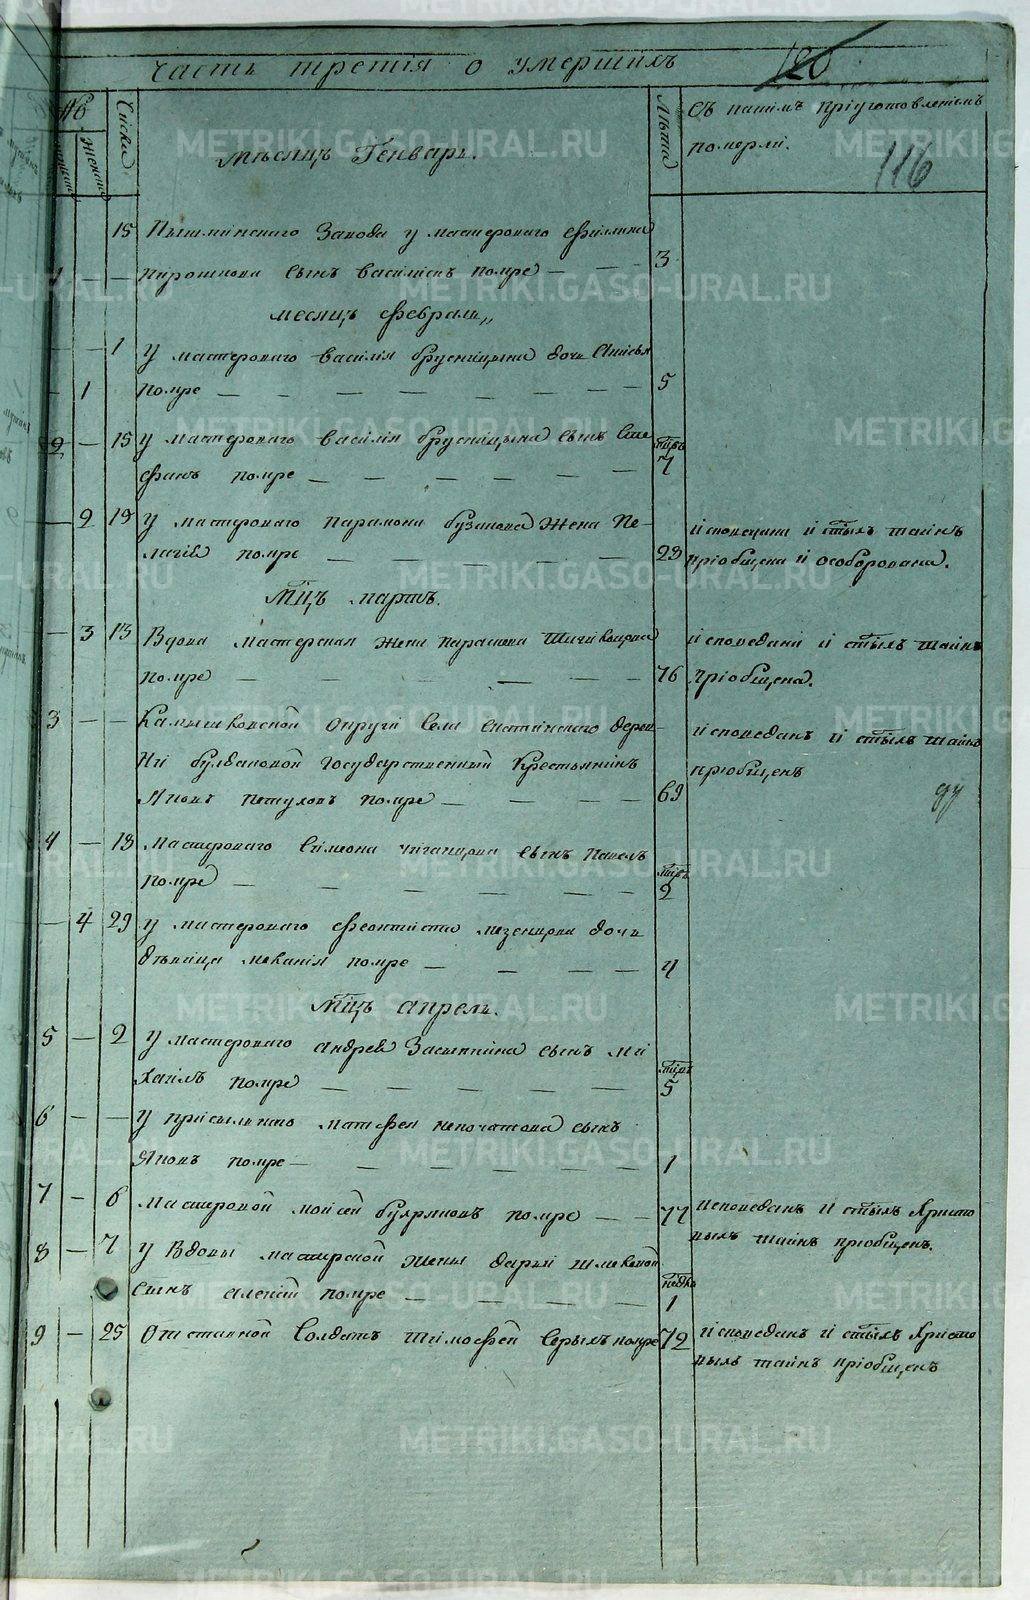 Часть третія о умершихъ
120
116
№
Женска
Числа
Лѣта
Съ какимъ пріуготовленіемъ
померли.
Мѣсяцъ Генварь.
15 Пышминскаго Завода у мастероваго Филипа
1 — — сынъ Василискъ помре — — — 3
месяцъ февраль
— — 1 у мастероваго Василія Брусницына дочь Анисья
— 1 помре — — — — — — 5
2 — 15 у мастероваго Василія Брусницына сынъ Сте
фанъ помре — — — — — — 7
— 2 19 у мастероваго Парамона Бузанова жена Пе-
лагія помре — — — — — — 23
исповедана и стыхъ таинъ
пріобщена и особорована.
Мцъ мартъ.
— 3 13 Вдова мастерская жена
помре — — — — 76
исповедана и стыхъ таинъ
пріобщена.
3 — — Камышловской округи села дерев
ни Булдаковой государственный крестьянинъ
Яковъ Петуховъ помре — — — — 69
исповеданъ и стыхъ таинъ
пріобщенъ
4 — 18 мастероваго Симеона сынъ Павелъ
помре — — — — — — 2
— 4 29 у мастероваго Феоктиста Мезенцова дочь
девица помре — — — — 4
Мцъ апрель.
5 — 2 у мастероваго Андрея Засыпкина сынъ Ми
хаилъ помре — — — — — — 5
6 — — у присыльнаго Матфея Непочатова сынъ
Яковъ помре — — — — — — 1
7 — 6 мастеровой Моисей Буяршновъ помре — — 77
исповеданъ и стыхъ Христо
выхъ таинъ пріобщенъ.
8 — 7 у Вдовы мастерской жены Дарьи
сынъ Алексій помре — — — — — 1
9 — 25 Отставной Солдатъ Тимофей Серыхъ помре 72
исповеданъ и стыхъ Христо
выхъ таинъ пріобщенъ
METRIKI.GASO-URAL.RU